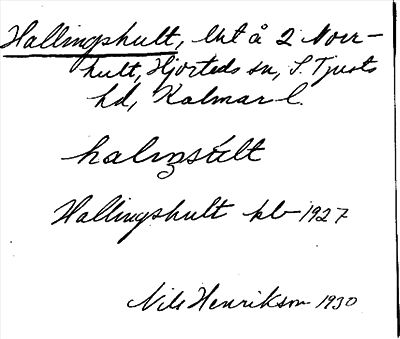 Hallingshult, lht å 2 Norr-
hult, Hjorteds sn, S. Tjusts
hd, Kalmar l.
Hallingshult kb 1927
Nils Henrikson 1930